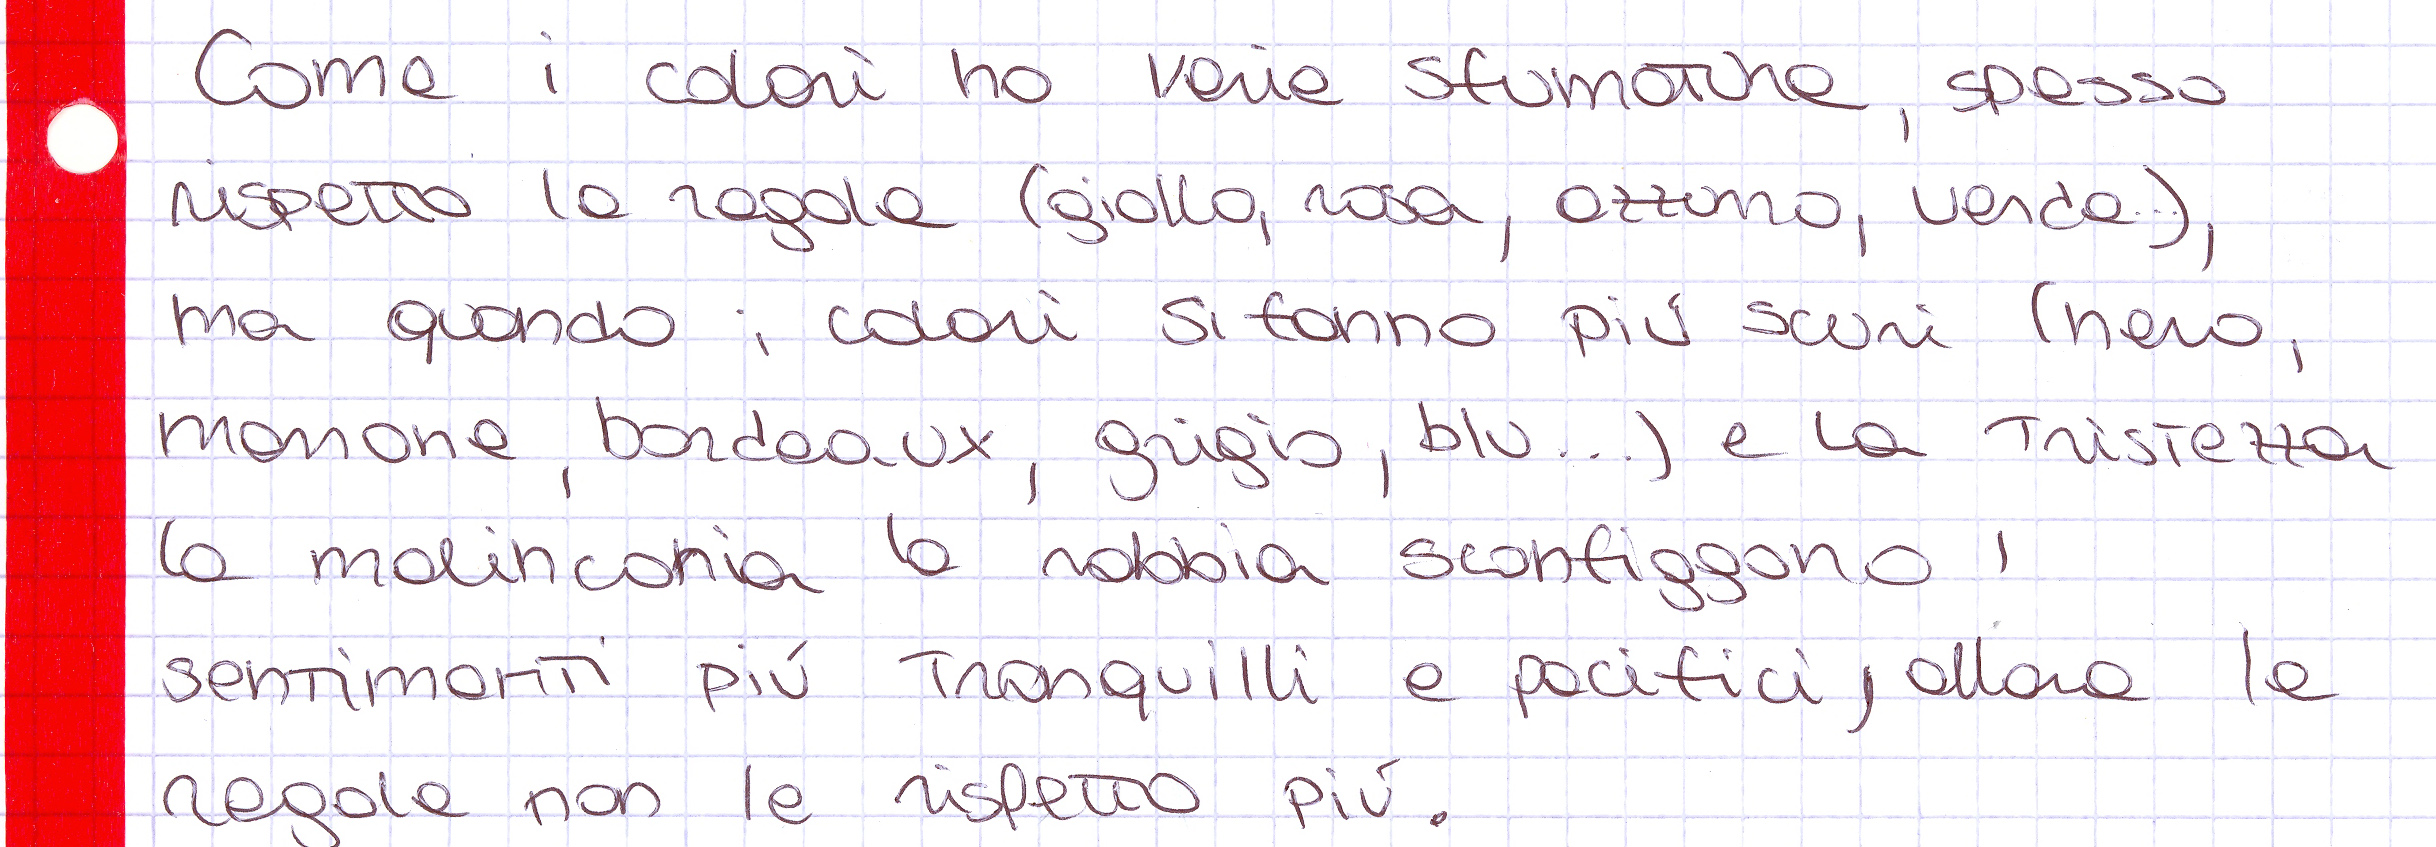 Come i colori ho varie sfumature, spesso
rispetto le regole (giallo, rosa, azzurro, verde...),
ma quando i colori si fanno più scuri (nero,
marrone, bordeaux, grigio, blu...) e la tristezza
la malinconia la rabbia sconfiggono i
sentimenti più tranquilli e pacifici, allora le
regole non le rispetto più.